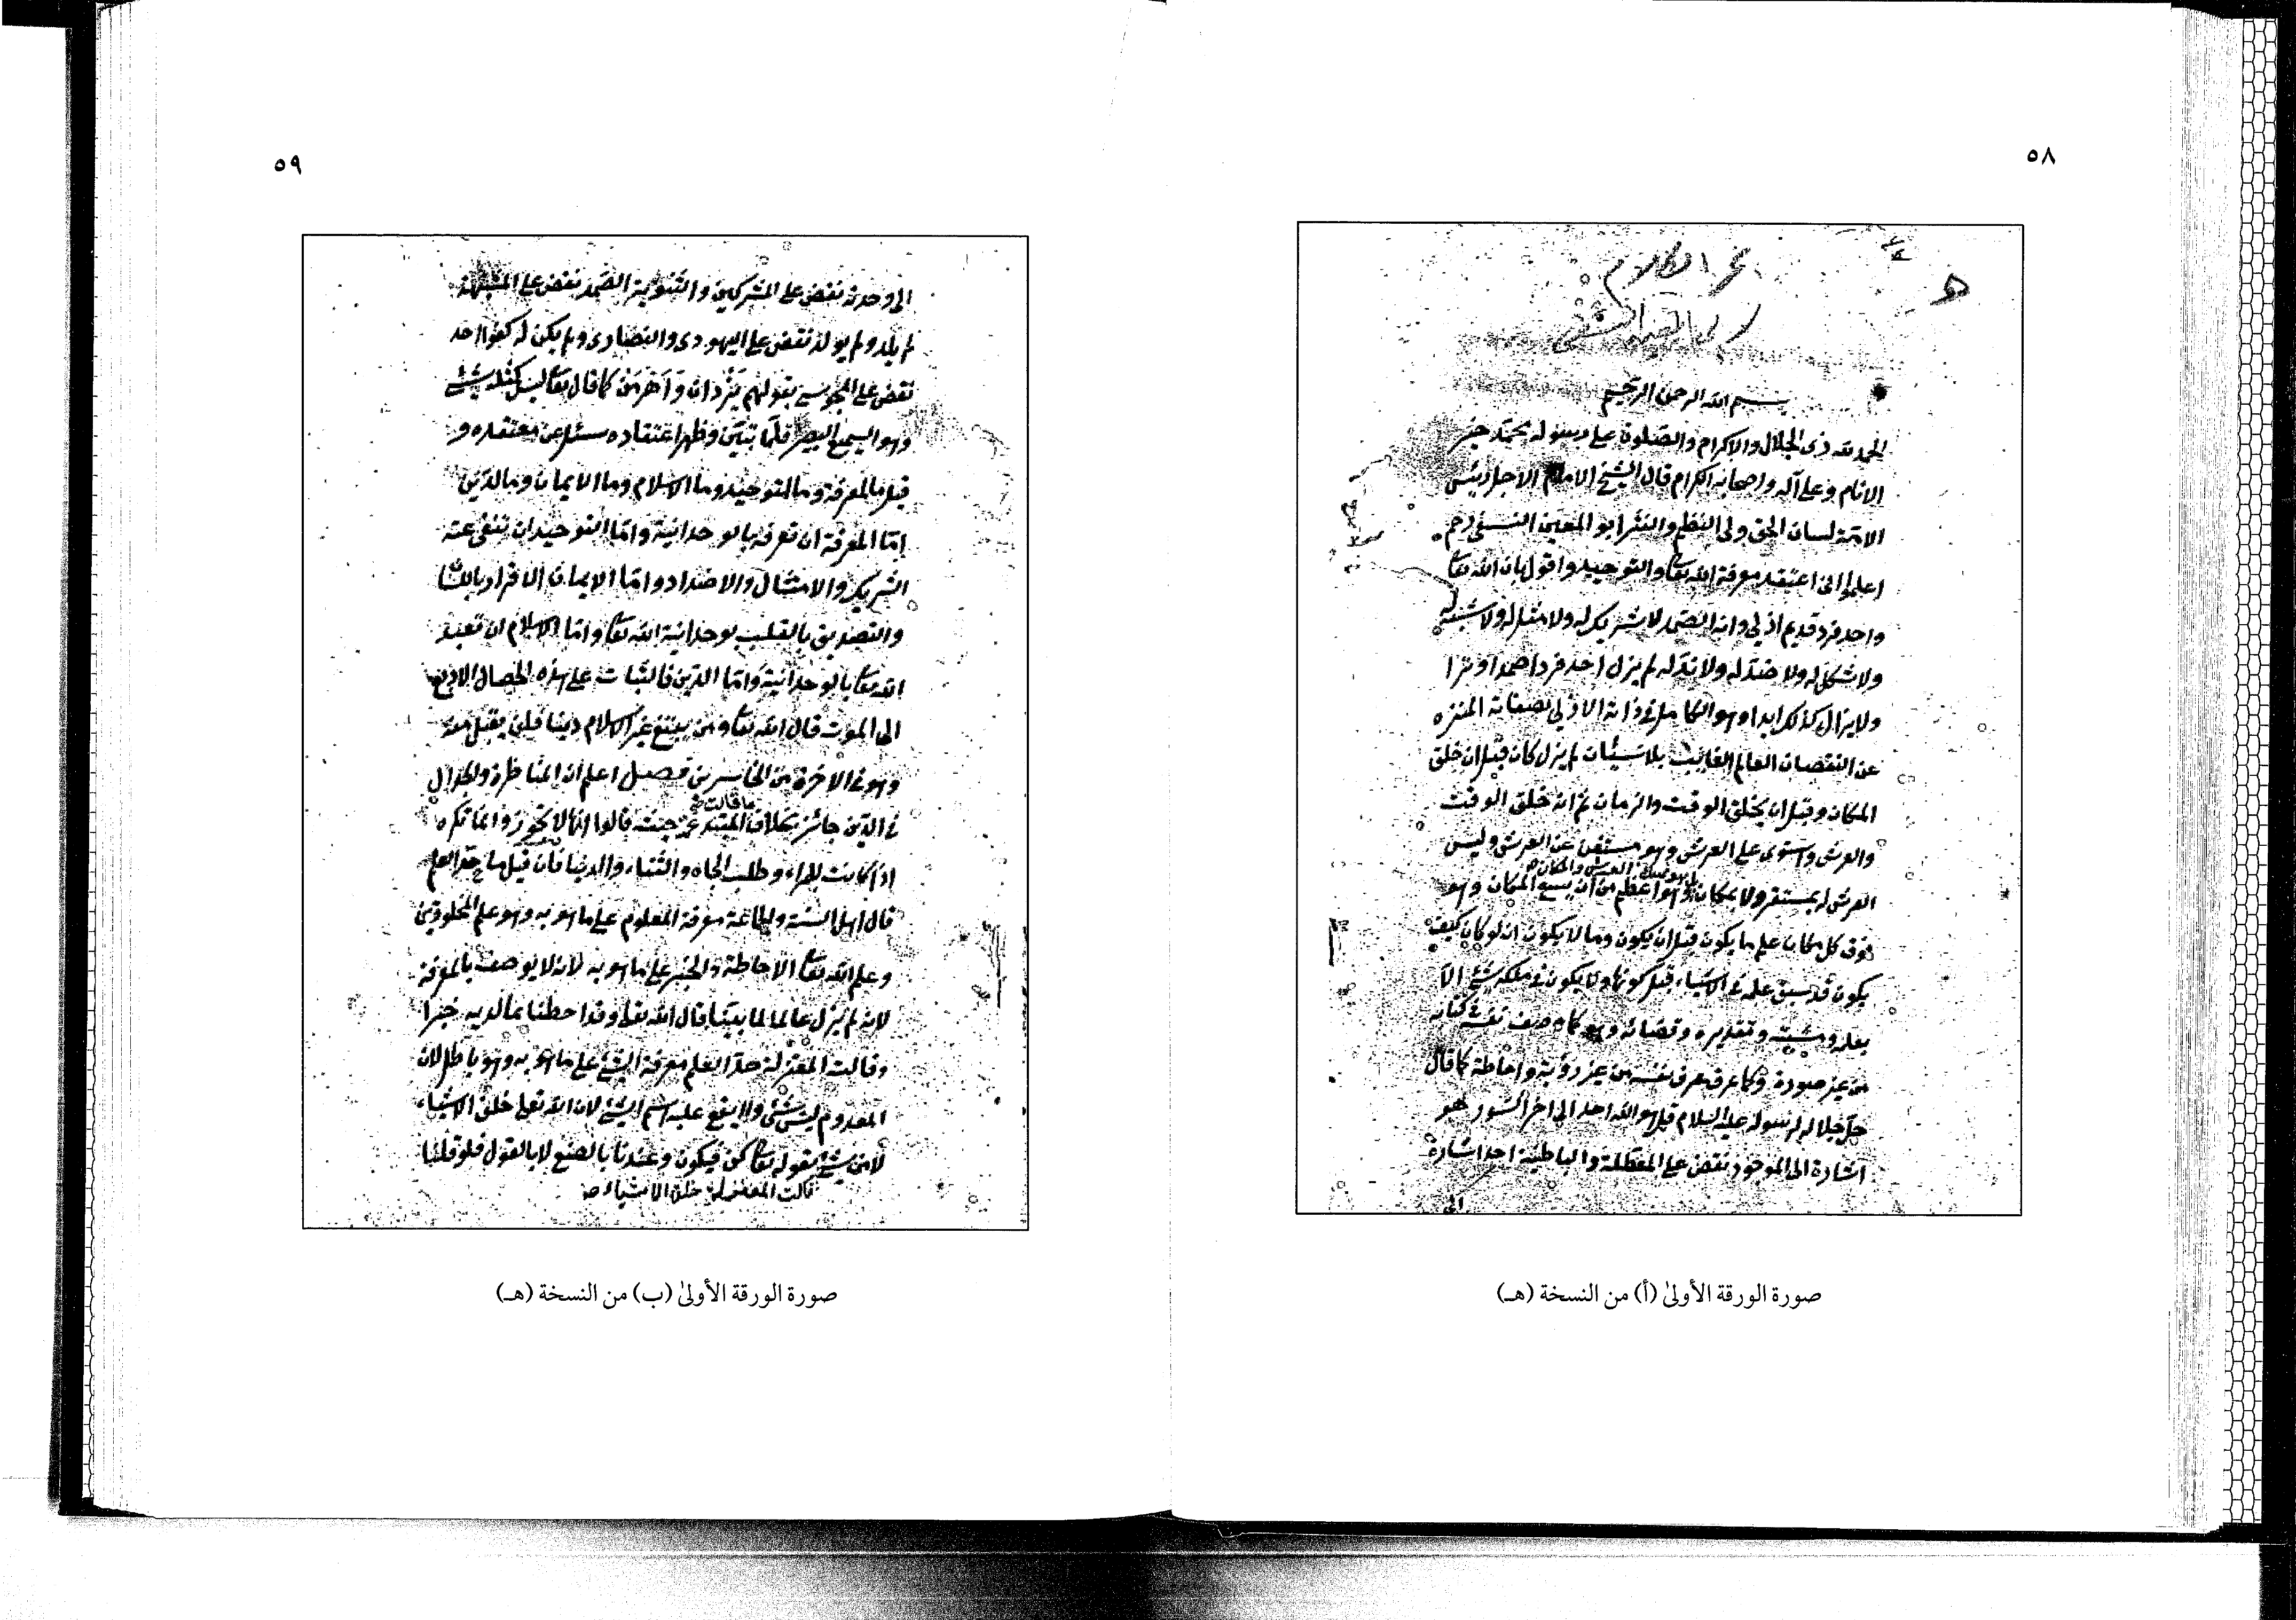 ٥٨
بحر الكلام
بسم الله الرحمن الرحيم
الحمد لله ذى الجلال والاكرام والصلوة على رسوله محمد خير
الانام وعلى آله واصحابه الكرام قال الشيخ الامام الاجل رئيس
الائمة لسان الحق ولى النظم والنثر ابو المعين النسفى رحم
اعلموا انى اعتقد معرفة الله تعا والتوحيد واقول بان الله تعا
واحد فرد قديم ازلي وانه الصمد لا شريك له ولا مثل له ولا شبه له
ولا شكل له ولا ضد له ولا ند له لم يزل احد فردا صمدا وترا
ولا يزال كذلك ابدا وهو الكامل فى ذاته الازلي بصفاته المنزه
عن النقصان العالم الغائب بلا نسيان لم يزل كان قبل ان خلق
المكان وقبل ان يخلق الوقت والزمان ثم انه خلق الوقت
والعرش واستوى على العرش وهو مستغن عن العرش وليس
العرش له بمستقر ولا بمكان وهو اعظم من ان يسع المكان وهو
فوق كل مكان علم ما يكون قبل ان يكون وما لا يكون ان لو كان كيف
يكون قد سبق علمه فى الاشياء قبل كونها ولا يكون فى ملكه شئ الا
بعلمه ومشيته وتقديره وقضائه وهو كما وصف نفسه فى كتابه
من غير صورة وكما عرف عرف نفسه من غير رؤية واحاطة كما قال
جل جلاله لرسوله عليه السلام قل هو الله احد الى اخر السور هو
اشارة الى الموجود نقض على المعطلة والباطنية احد اشارة
الى
صورة الورقة الأولىٰ (أ) من النسخة (هـ)
٥٩
الى وحدته نقض على المشركين والثنوية الصمد نقض على المشبهة
لم يلد ولم يولد نقض على اليهودى والنصارى ولم يكن له كفوا احد
نقض على المجوسى بقولهم يزدان وآهرمن كما قال تعا ليس كمثله شئ
وهو السميع البصير فلما تبين وظهر اعتقاده سئل عن معتقده و
قيل ما المعرفة وما التوحيد وما الاسلام وما الايمان وما الدين
امّا المعرفة ان تعرفه بالوحدانية وامّا التوحيد ان تنفى عنه
الشريك والامثال والاضداد وامّا الايمان الاقرار باللسان
والتصديق بالقلب بوحدانية الله تعا وامّا الاسلام ان تعبد
الله تعا بالوحدانية وامّا الدين فالثبات على هذه الخصال الاربع
الى الموت قال الله تعا ومن يبتغ غير الاسلام دينا فلن يقبل منه
وهو فى الاخرة من الخاسرين فصل اعلم ان المناظرة والجدال
ما قالت
فى الدين جائز بخلاف المبتدعة حيث قالوا انها لا تجوز وانما تكره
اذا كانت للمراء وطلب الجاه والثناء والدنيا فان قيل ما حد العلم
قال اهل السنة والجماعة معرفة المعلوم على ما هو به وهو علم المخلوقين
وعلم الله تعا الاحاطة والخبر على ما هو به لانه لا يوصف بالمعرفة
لانه لم يزل عالما لما بينا قال الله تعا وقد احطنا بما لديه خبرا
وقالت المعتزلة حد العلم معرفة الشئ على ما هو به وهو باطل لان
المعدوم ليس بشئ ولا يقع عليه اسم الشئ لان الله تعا خلق الاشياء
لا من شئ بقوله تعا كن فيكون وعندنا بالصنع لا بالقول فلو قلنا
قالت المعتزلة خلق الاشياء
صورة الورقة الأولىٰ (ب) من النسخة (هـ)